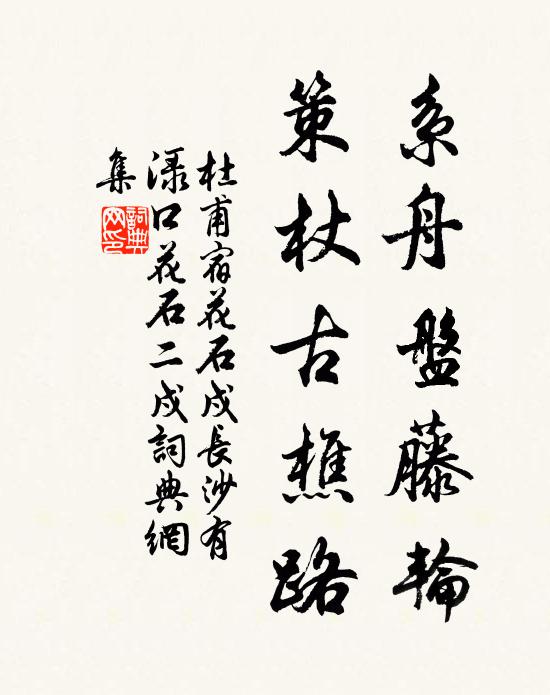 系舟盤藤輪
策杖古樵路
杜甫宿花石戍長沙有
渌口花石二戍詞典網
集
詞典网印